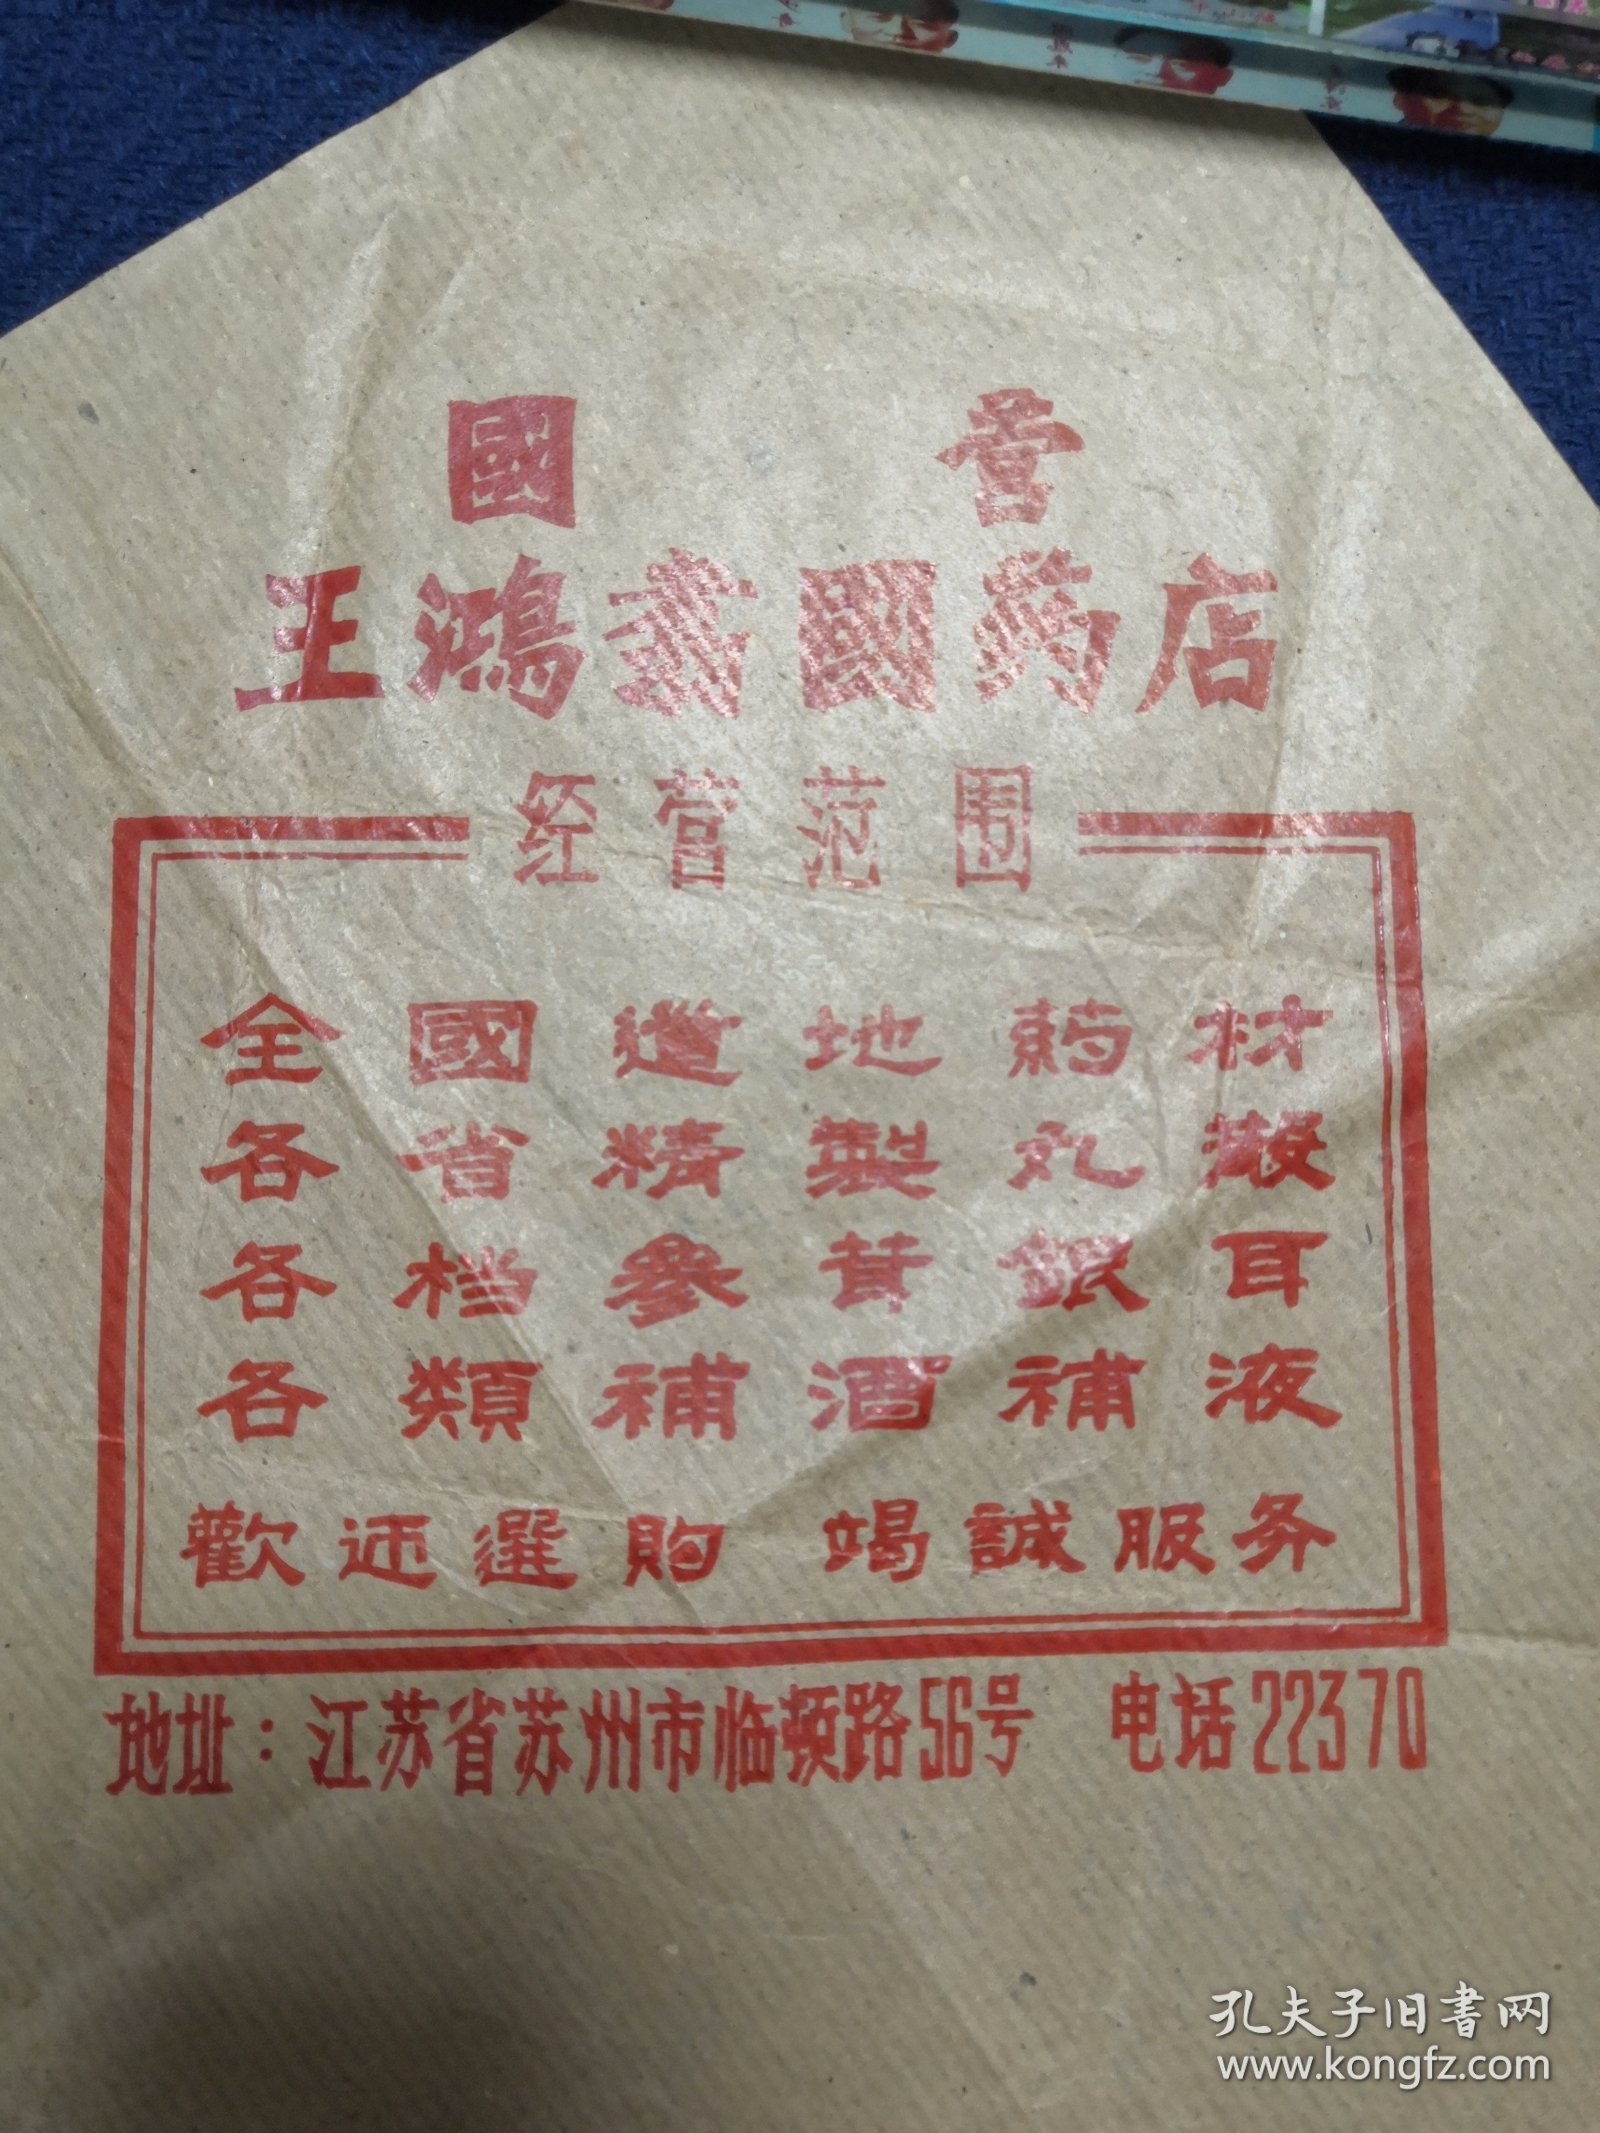 國营
王鴻翥國药店
经营范围
全國道地药材
各省精製丸散
各档參茸銀耳
各類補酒補液
歡迎選購 竭誠服务
地址：江苏省苏州市临顿路56号 电话22370
孔夫子旧書网
www.kongfz.com